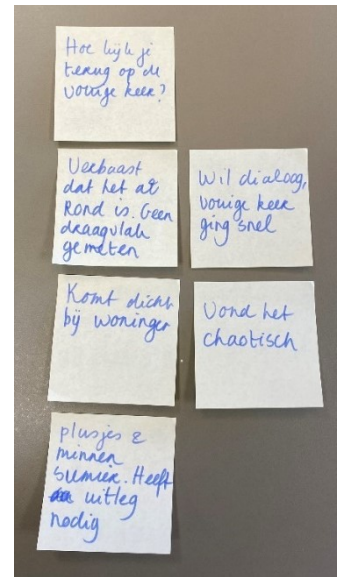 Hoe kijk je
terug op de
vorige keer?
Verbaast
dat het al
Rond is. Geen
draagvlak
gemeten
Wil dialoog,
vorige keer
ging snel
Komt dicht
bij woningen
Vond het
chaotisch
plusjes &
minnen
sumier. Heeft
uitleg
nodig